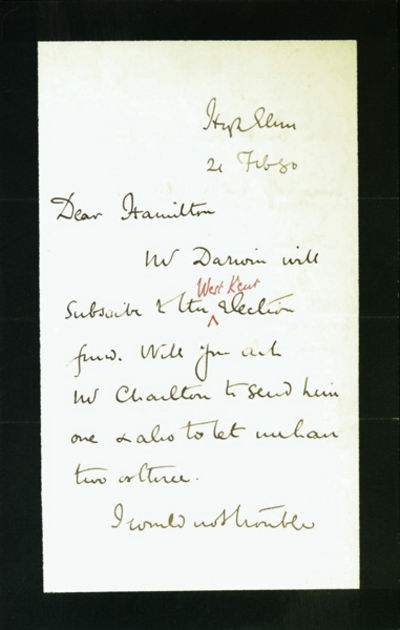 High Elms
21 Feb 80
Dear Hamilton
Mr Darwin will
West Kent
Subscribe to the ^ Election
fund. Will you ask
Mr Charlton to send him
one & also to let me have
two or three.
I would not trouble